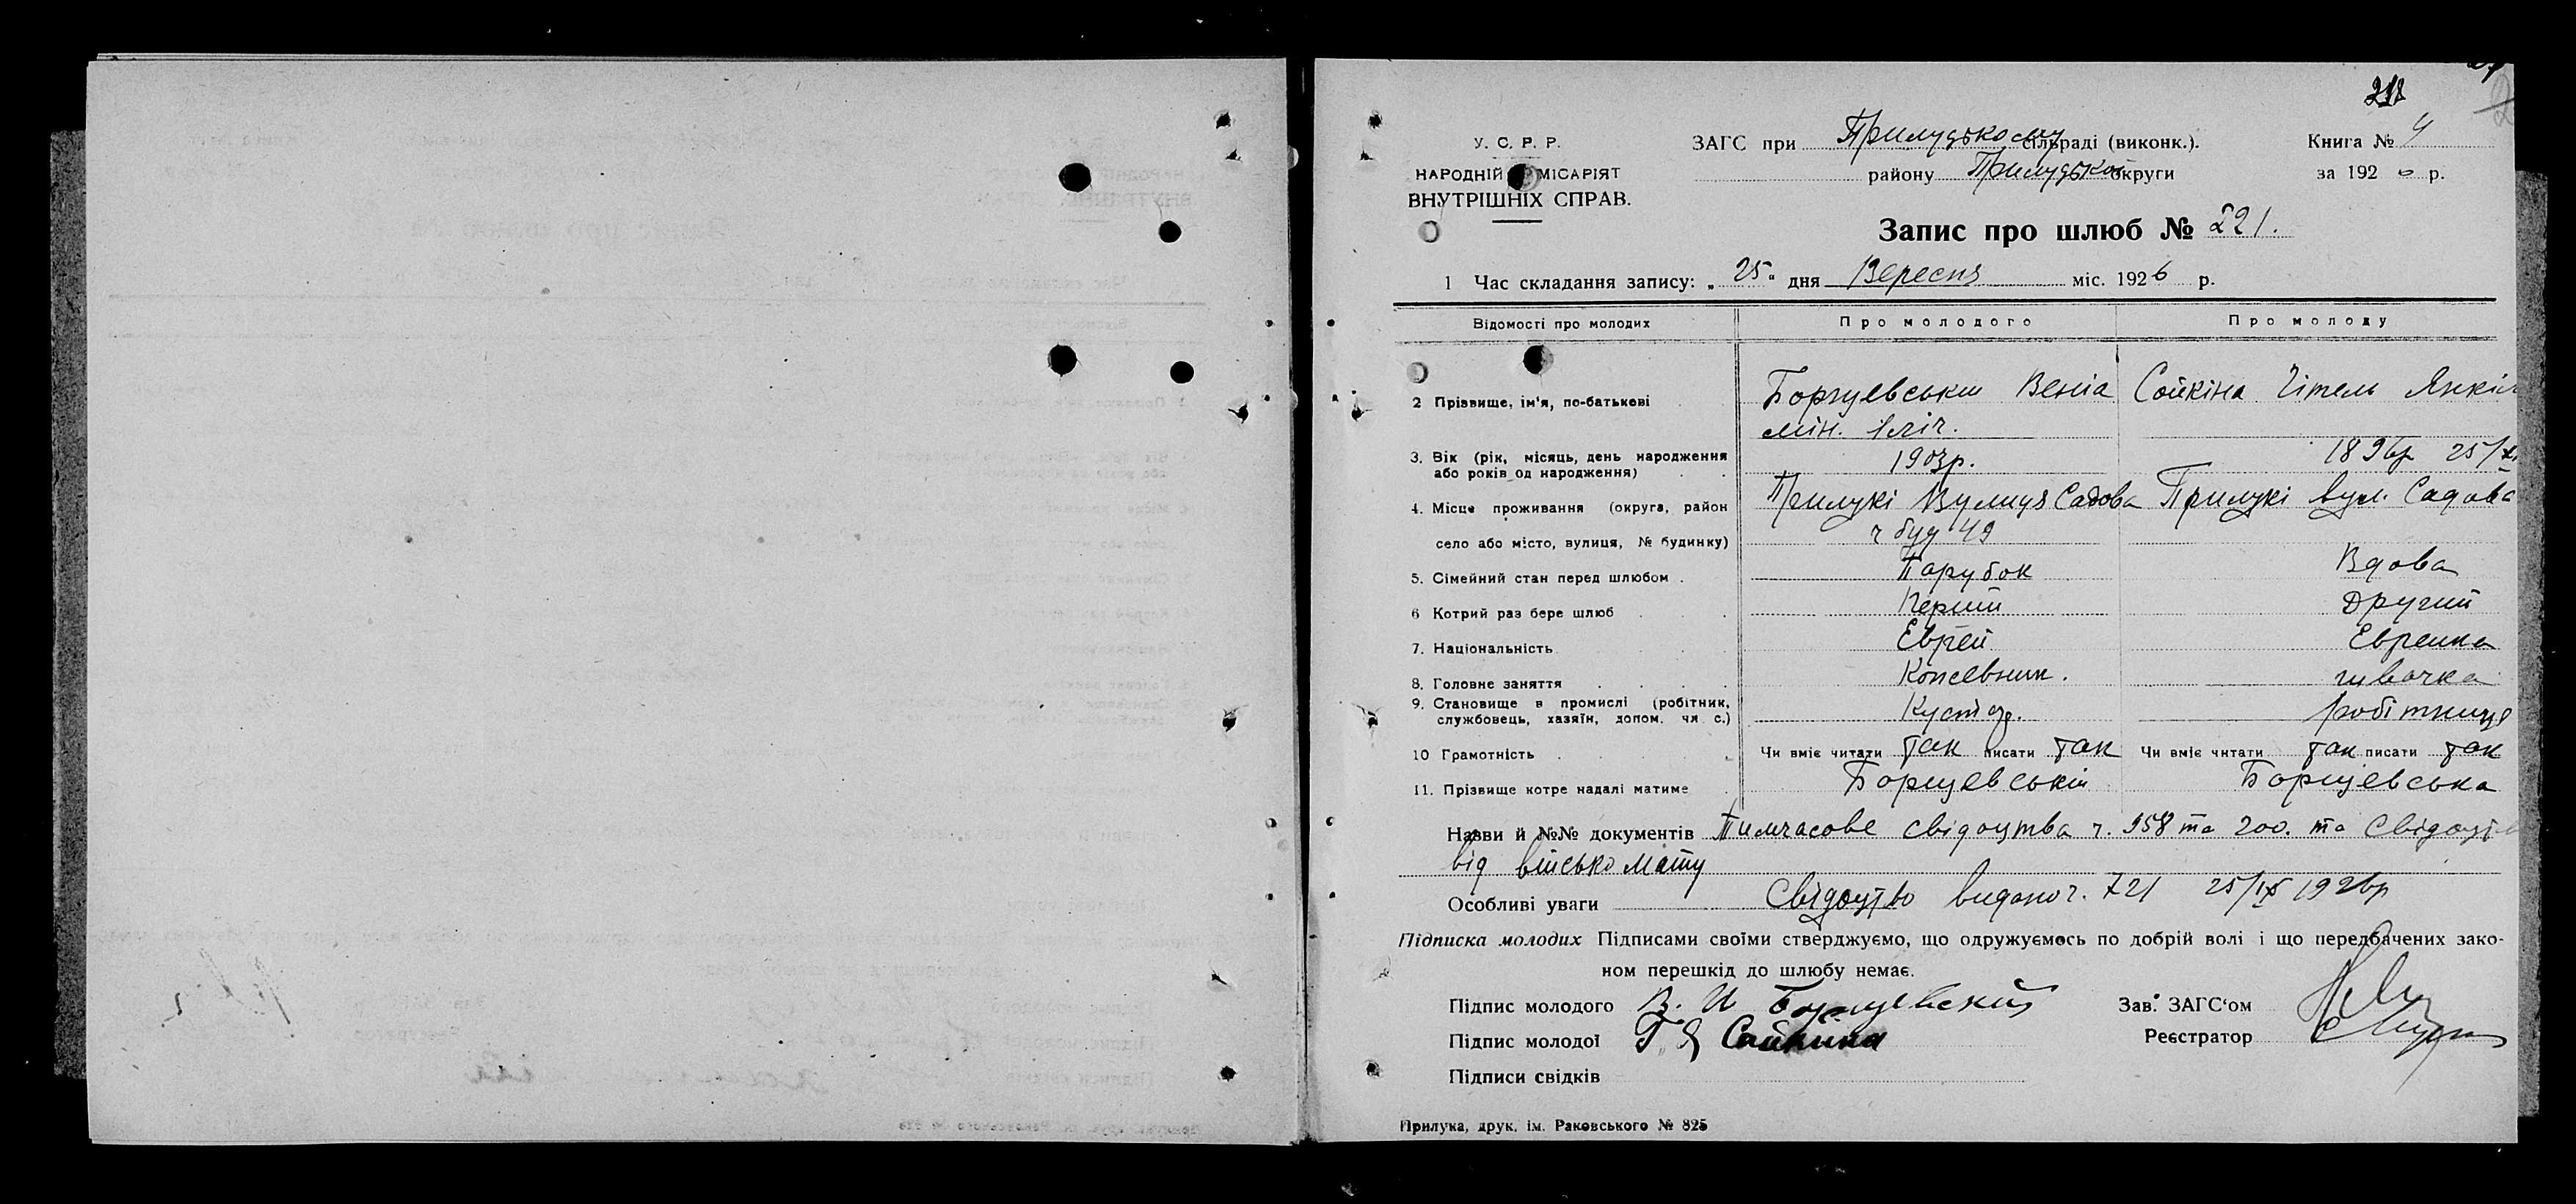 218
У. С. Р. Р.
НАРОДНІЙ КОМІСАРІЯТ
ВНУТРІШНІХ СПРАВ.
ЗАГС при Прилуцькому сільраді (виконк.).
району Прилуцької округи
Книга № 4
за 1926 р.
Запис про шлюб № 221.
1 Час складання запису: „25" дня Вересня міс. 1926 р.
Відомості про молодих Про молодого Про молоду
2 Прізвище, ім'я, по-батькові Борщевськии Веніа Сойкіна Гітель Янкіл
мін. Ічліч.
3. Вік (рік, місяць, день народження 1903р. 1896р 25/XI
або років од народження)
4. Місце проживання (округа, район Прилукі Вулиця Садова Прилукі вул. Садова
село або місто, вулиця, № будинку) ч буд 49
5. Сімейний стан перед шлюбом . Парубок Вдова
6 Котрий раз бере шлюб Перший Другий
7. Національність Еврей Евреика
8. Головне заняття Кожевник. швачка
9. Становище в промислі (робітник, Кустар. робітниця
службовець, хазяїн, допом. чл с.)
10 Грамотність Чи вміє читати так писати так Чи вміє читати так писати так
11. Прізвище котре надалі матиме Борщевській Борщевська
Назви й №№ документів Тимчасове свідоцтва ч. 958 та 200. та Свідоцтв
від військомату
Особливі уваги Свідоцтво видано ч. 721 25/IX 1926р
Підписка молодих Підписами своїми стверджуємо, що одружуємось по добрій волі і що передбачених зако-
ном перешкід до шлюбу немає.
Підпис молодого В. И Борщевский Зав. ЗАГС'ом
Підпис молодої Г Я Сойкина Реєстратор
Підписи свідків
Прилука, друк. ім. Раковського № 825